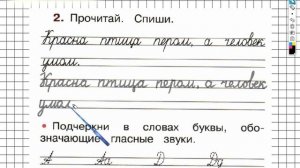 2. Прочитай. Спиши.
Красна птица пером, а человек
умом.
Красна птица пером, а человек
умом.
• Подчеркни в словах буквы, обо-
значающие гласные звуки.